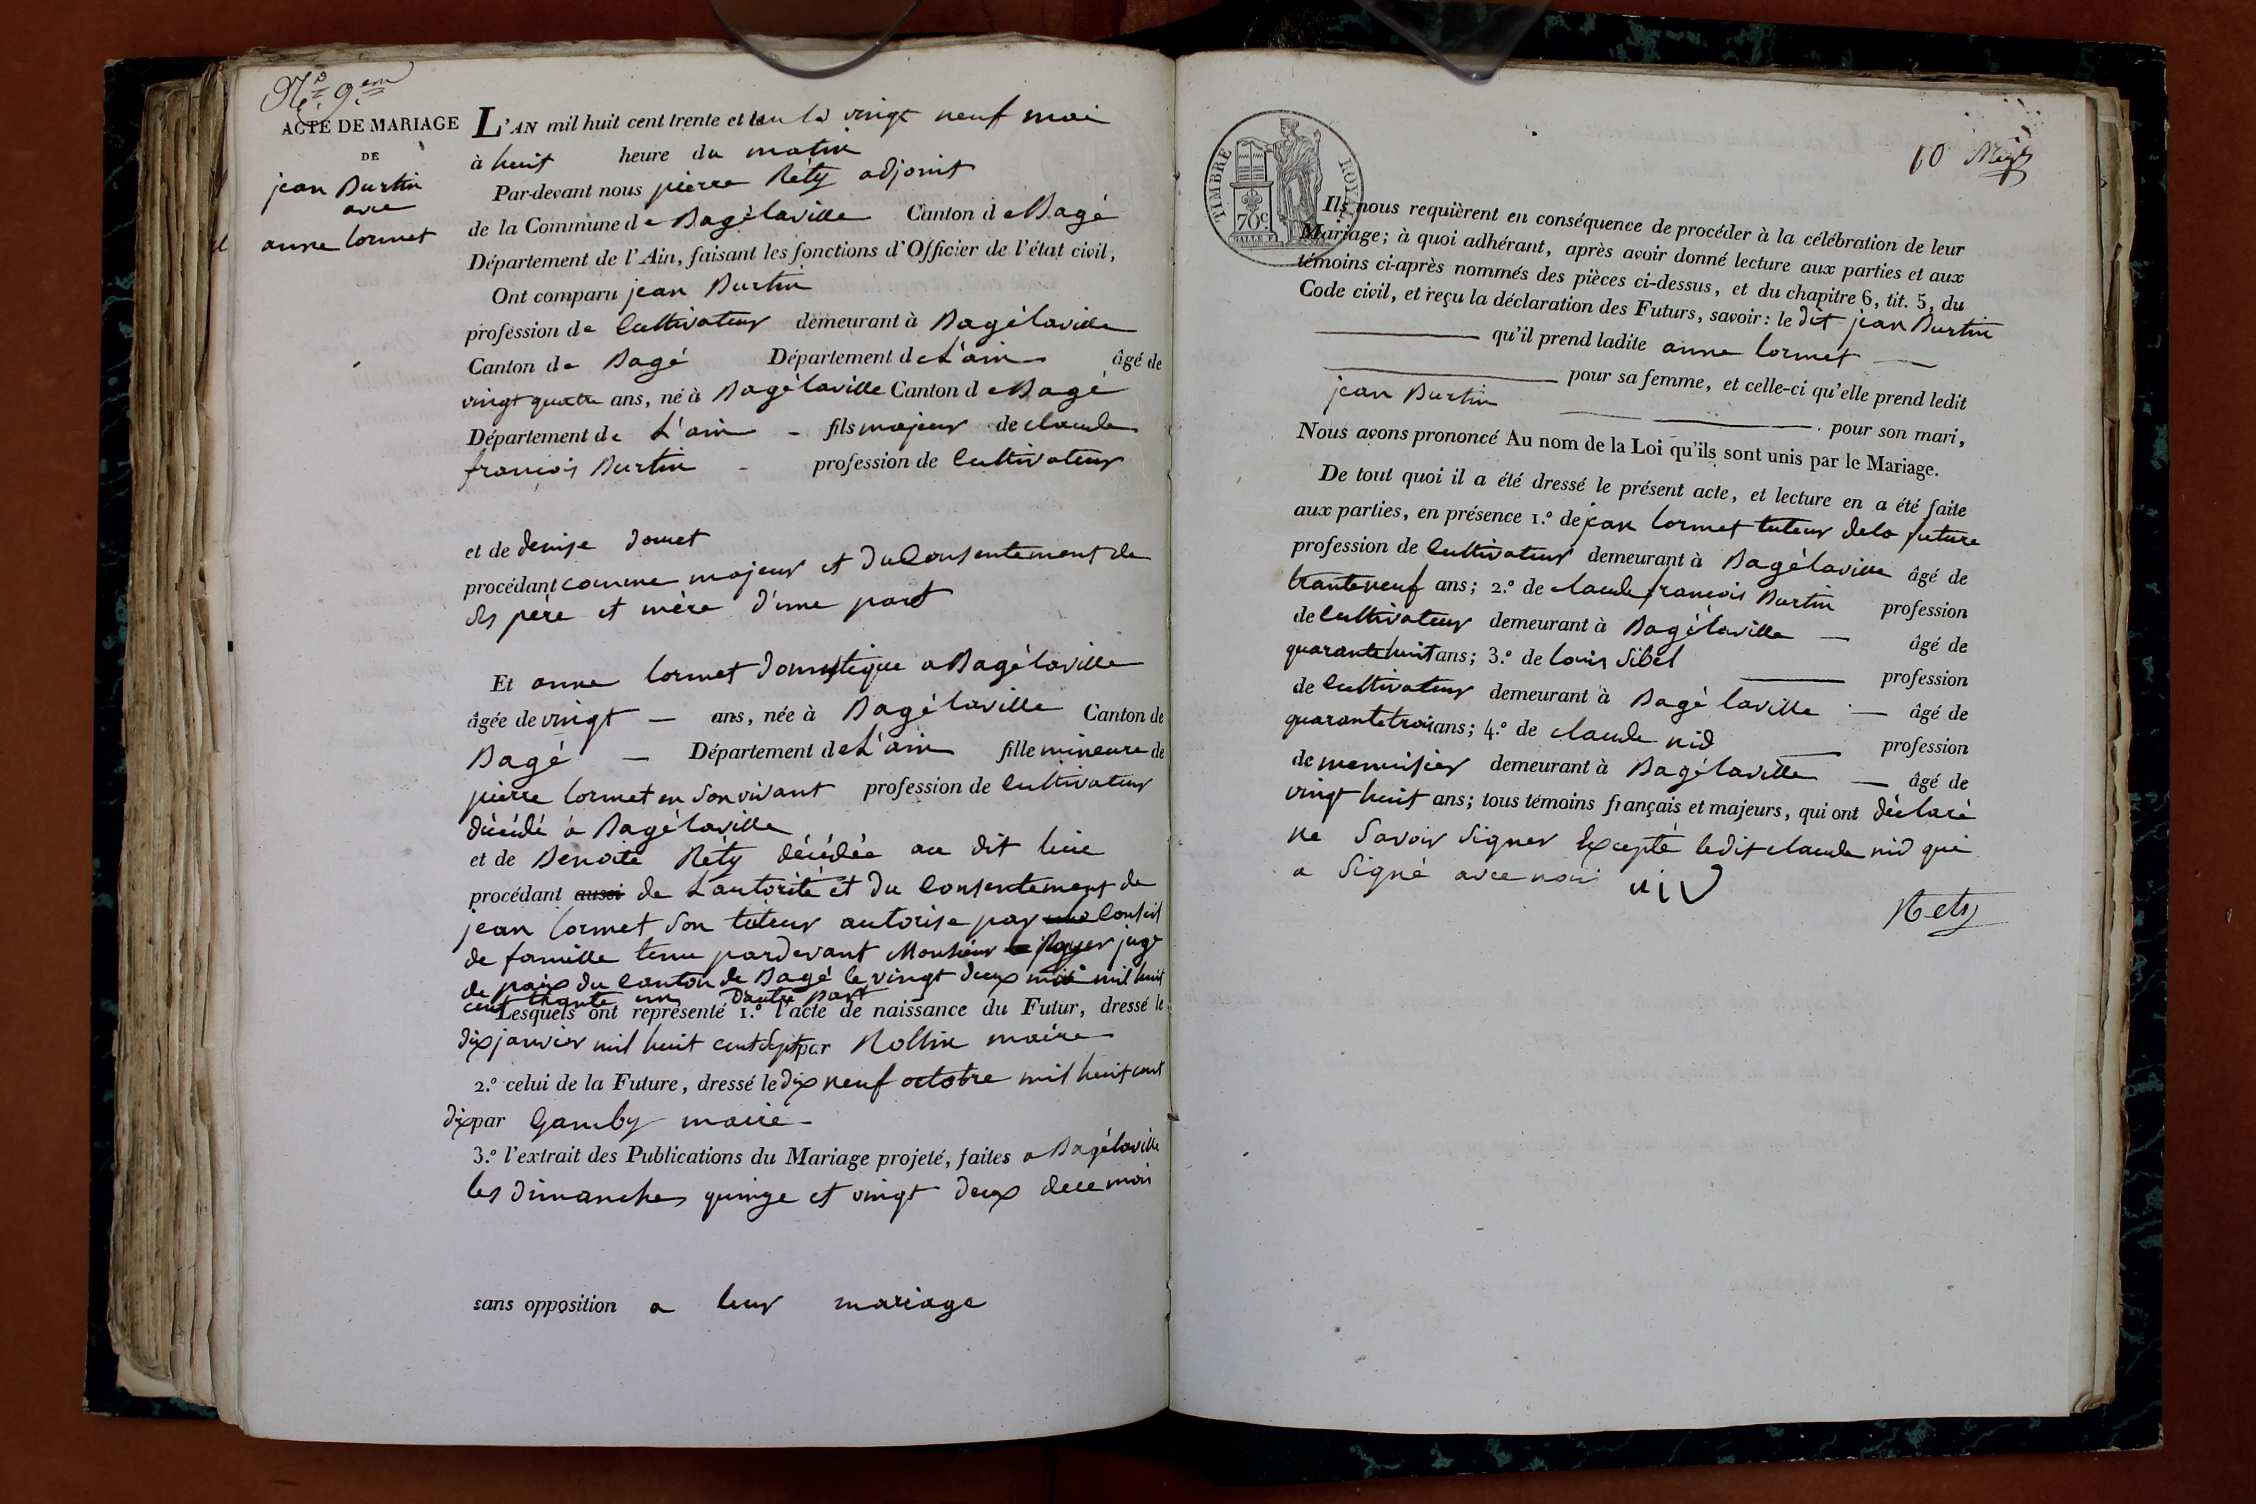 N.º 9.em
ACTE DE MARIAGE
DE
jean Burtin
avec
anne Cormet
L'AN mil huit cent trente et un le vingt neuf mai
à huit heure du matin
Par-devant nous pierre Réty adjoint
de la Commune de Bagélaville Canton de Bagé
Département de l'Ain, faisant les fonctions d'Officier de l'état civil,
Ont comparu jean Burtin
profession de Cultivateur demeurant à Bagélaville
Canton de Bagé Département de L'ain âgé de
vingt quatre ans, né à Bagélaville Canton de Bagé
Département de L'ain - fils majeur de claude
françois Burtin - profession de Cultivateur
et de denise douet
procédant comme majeur et du Consentement de
ses père et mère d'une part
Et anne Cormet domestique a Bagélaville
âgée de vingt — ans, née à Bagélaville Canton de
Bagé — Département de L'ain fille mineure de
pierre Cormet en son vivant profession de Cultivateur
décédé a Bagélaville
et de Benoite Réty décédée au dit lieu
procédant aussi de L'autorité et du Consentement de
jean Cormet son tuteur autorise par Conseil
de famille tenu pardevant Monsieur Royer juge
de paix du Canton de Bagé le vingt deux mai mil huit
cent trente un d'autre part
Lesquels ont représenté 1.º l'acte de naissance du Futur, dressé le
dix janvier mil huit cent sept par Rollin maire
2.º celui de la Future, dressé le dix neuf octobre mil huit cent
dix par Gamby maire
3.º l'extrait des Publications du Mariage projeté, faites a Bagélaville
les dimanches quinze et vingt deux de ce moi
sans opposition a leur mariage
10
TIMBRE ROYAL
70 c.
Ils nous requièrent en conséquence de procéder à la célébration de leur
Mariage; à quoi adhérant, après avoir donné lecture aux parties et aux
témoins ci-après nommés des pièces ci-dessus, et du chapitre 6, tit. 5, du
Code civil, et reçu la déclaration des Futurs, savoir: le dit jean Burtin
qu'il prend ladite anne Cormet
pour sa femme, et celle-ci qu'elle prend ledit
jean Burtin pour son mari,
Nous avons prononcé Au nom de la Loi qu'ils sont unis par le Mariage.
De tout quoi il a été dressé le présent acte, et lecture en a été faite
aux parties, en présence 1.º de jean Cormet tuteur dela future
profession de Cultivateur demeurant à Bagélaville âgé de
trante neuf ans; 2.º de claude francois Burtin profession
de Cultivateur demeurant à Bagélaville — âgé de
quarante huit ans; 3.º de Louis Sibel profession
de Cultivateur demeurant à Bagé laville — âgé de
quarante trois ans; 4.º de claude nid profession
de menuisier demeurant à Bagélaville — âgé de
vingt huit ans; tous témoins français et majeurs, qui ont déclaré
ne Savoir Signer Excepté ledit claude nid qui
a Signé avec nous nid
Rety